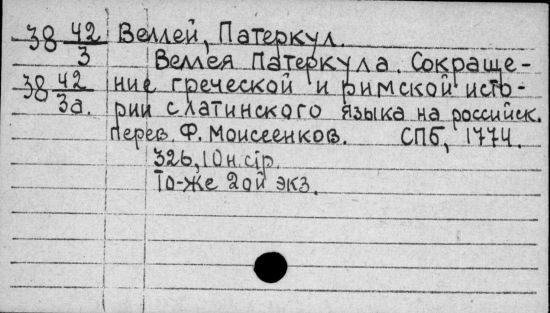 38 42/3 Веллей, Патеркул.
Веллея Патеркула. Сокраще-
38 42/3а. ние греческой и римской исто-
рии с латинского языка на российск.
Перев. Ф. Моисеенков. СПб, 1774.
326, 10 н.стр.
То-же 2ой экз.